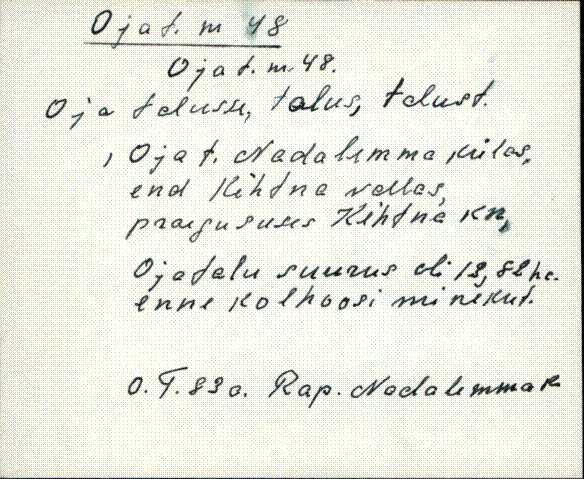 Oja t. m 48
Oja t. m. 48.
Oja talusse, talus, talust.
, Oja t. Nadalemma külas,
end Kehtna vallas,
praegususes Kehtna kn,
Ojatalu suurus oli 12,82 ha.
enne kolhoosi minekut.
O. T. 83 a. Rap. Nadalemma k